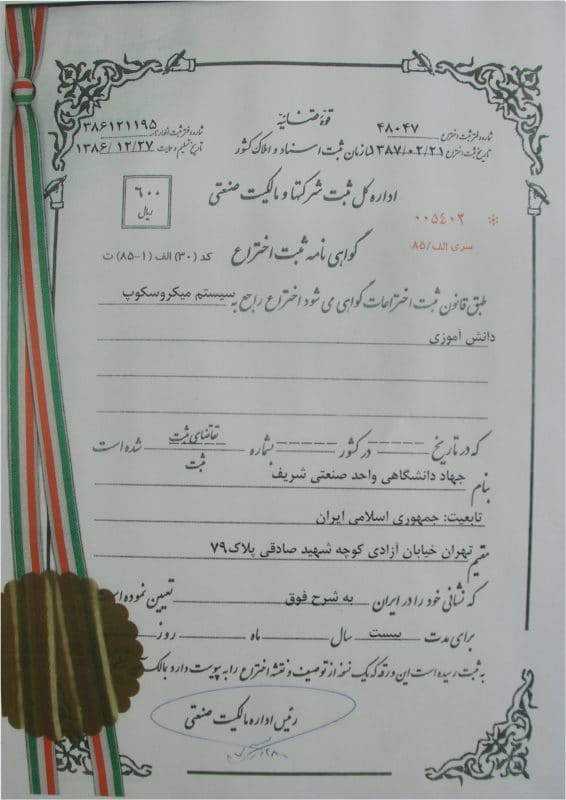 قوه قضائیه
شماره دفتر ثبت اختراع ۴۸۰۴۷
شماره دفتر ثبت اظهارنامه ۳۸۶۱۲۱۱۹۵
تاریخ ثبت اختراع ۱۳۸۷/۰۲/۲۱
سازمان ثبت اسناد و املاک کشور
تاریخ تسلیم و حمایت ۱۳۸۶/۱۲/۲۷
اداره کل ثبت شرکتها و مالکیت صنعتی
۶۰۰
ریال
* ۰۰۵۴۰۳
سری الف/۸۵
گواهی نامه ثبت اختراع
کد (۳۰) الف (۱-۸۵) ت
طبق قانون ثبت اختراعات گواهی می شود اختراع راجع به سیستم میکروسکوپ
دانش آموزی
که در تاریخ ------ در کشور ------ بشماره تقاضای ثبت شده است
ثبت
بنام جهاد دانشگاهی واحد صنعتی شریف
تابعیت: جمهوری اسلامی ایران
مقیم تهران خیابان آزادی کوچه شهید صادقی پلاک ۷۹
که نشانی خود را در ایران به شرح فوق تعیین نموده
برای مدت بیست سال ماه روز
به ثبت رسیده است این ورقه که یک نسخه از توصیف و نقشه اختراع را به پیوست دارد بمالک
رئیس اداره مالکیت صنعتی